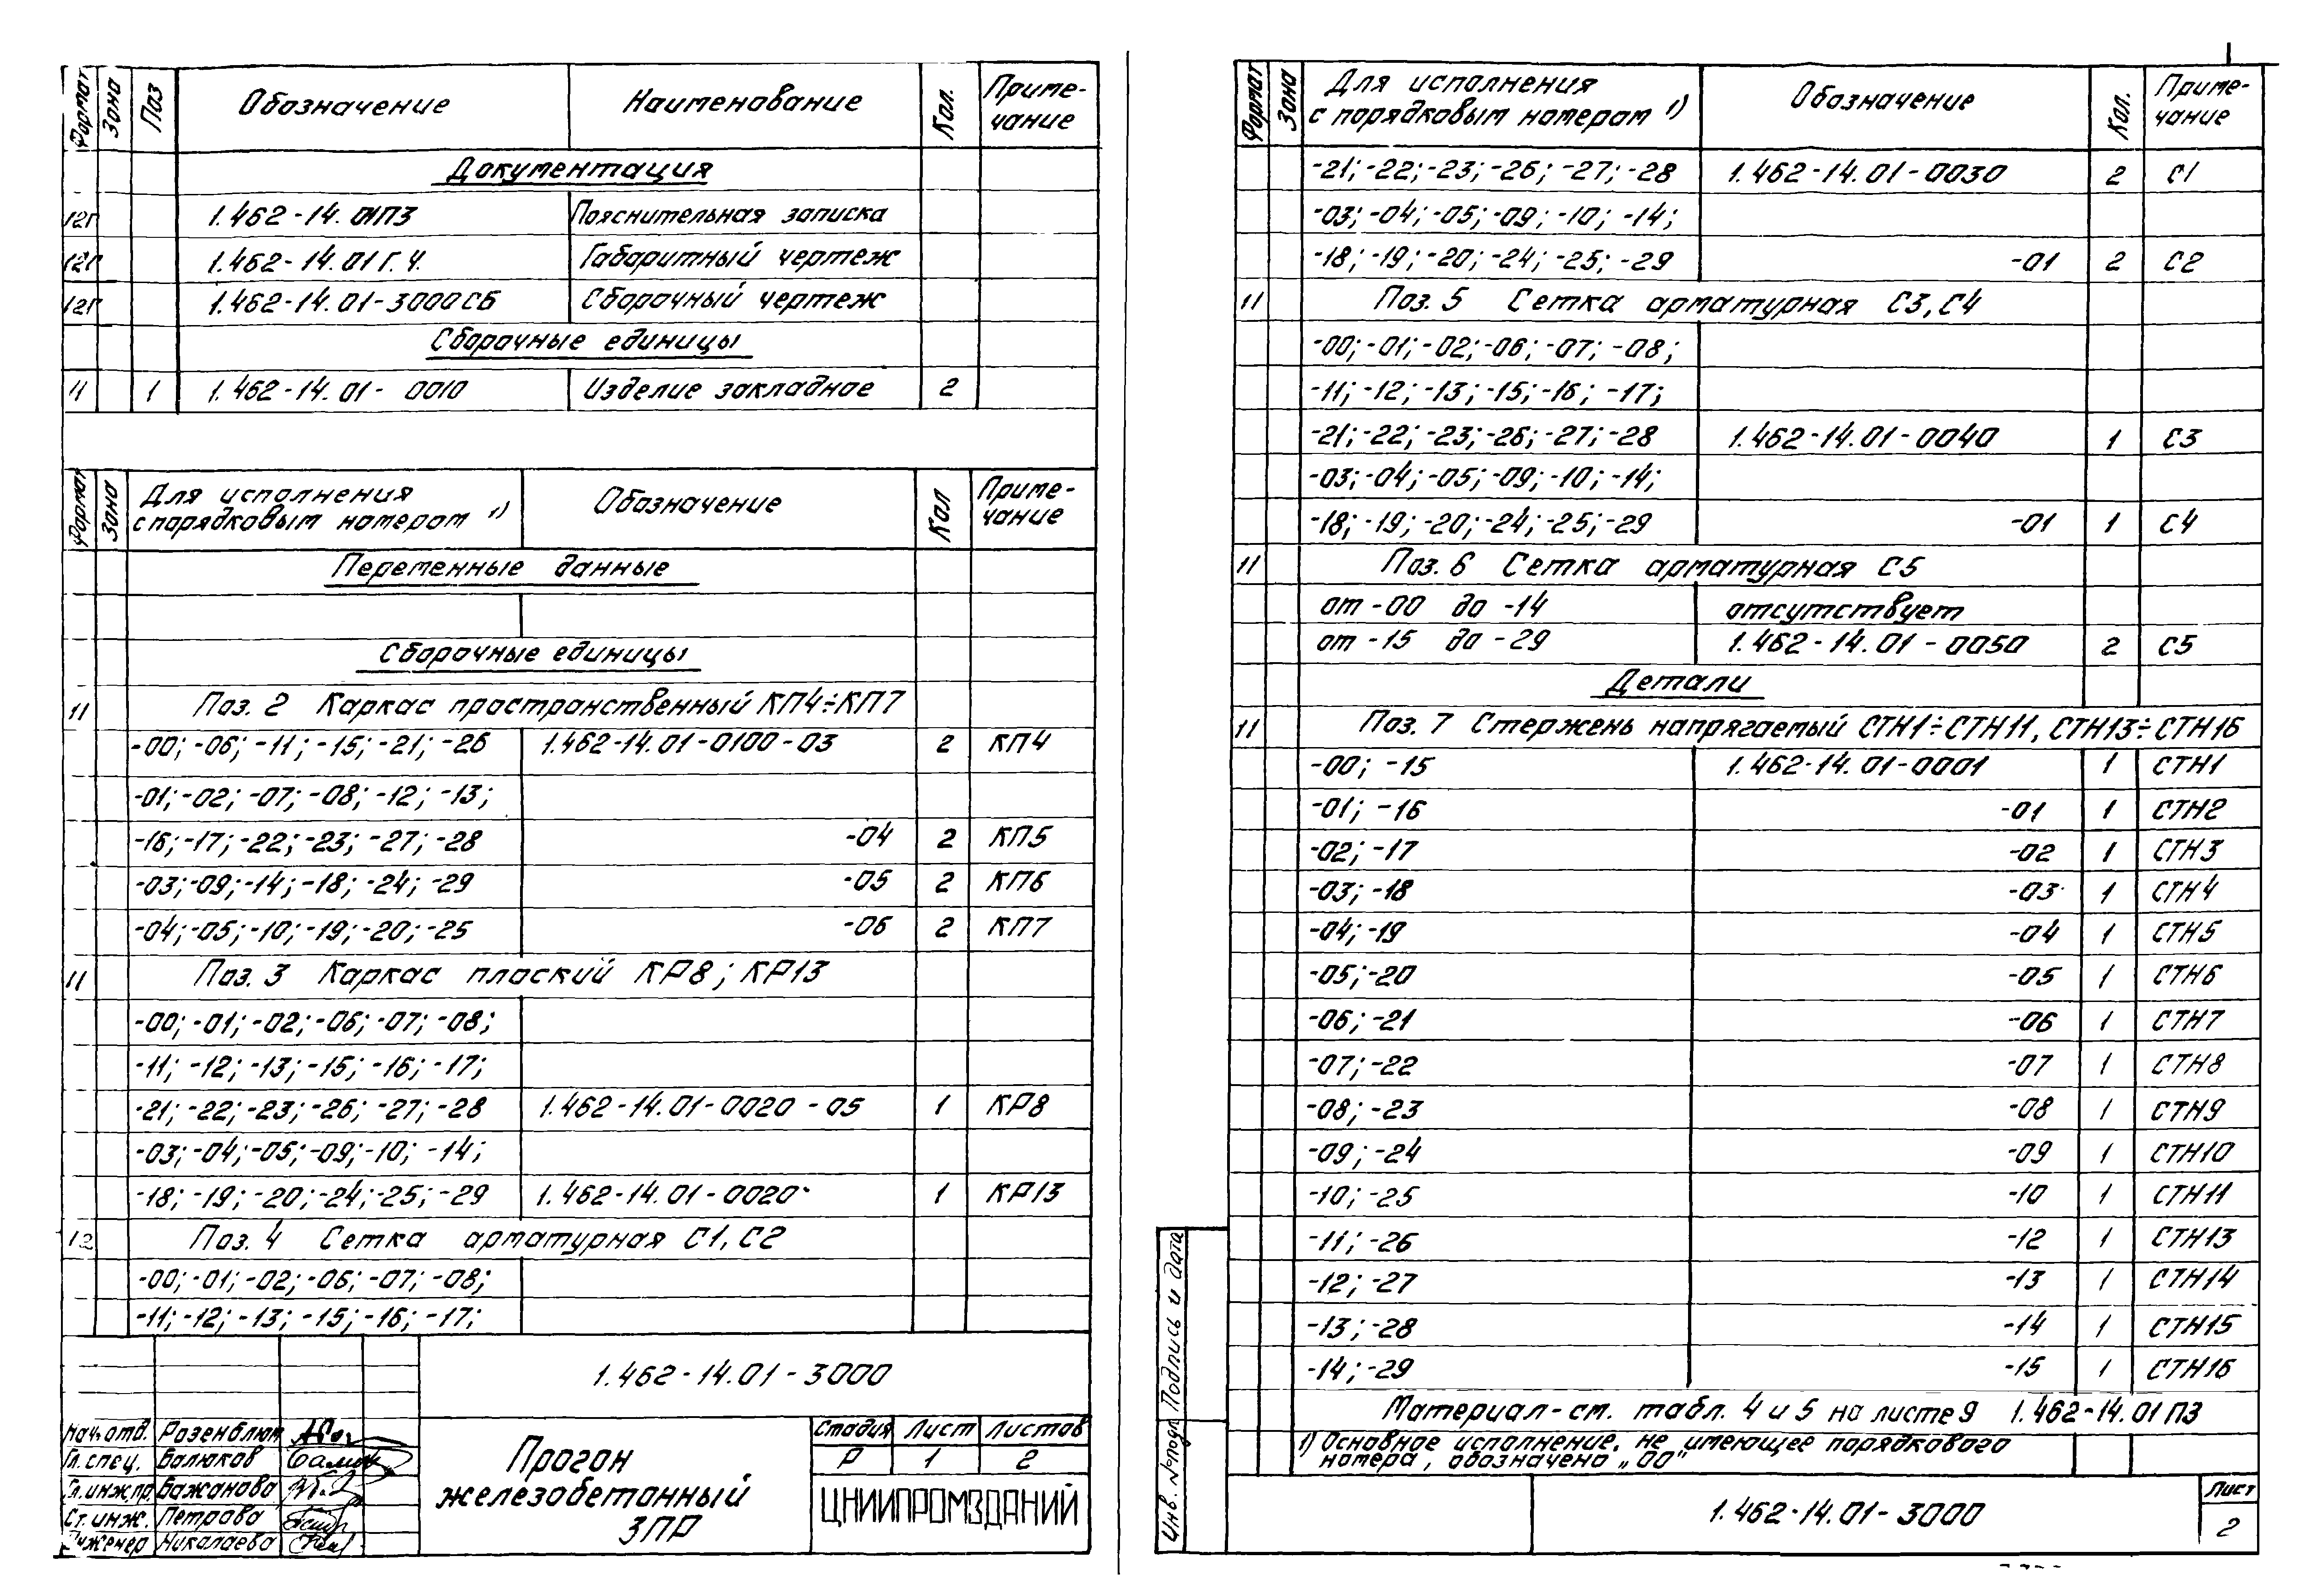 Формат Зона Поз Обозначение Наименование Кол. Приме-
чание
Документация
12Г 1.462-14.01ПЗ Пояснительная записка
12Г 1.462-14.01Г.Ч. Габаритный чертеж
12Г 1.462-14.01-3000СБ Сборочный чертеж
Сборочные единицы
11 1 1.462-14.01-0010 Изделие закладное 2
Формат Зона Для исполнения
с порядковым номером ¹⁾ Обозначение Кол Приме-
чание
Переменные данные
Сборочные единицы
11 Поз. 2 Каркас пространственный КП4÷КП7
-00; -06; -11; -15; -21; -26 1.462-14.01-0100-03 2 КП4
-01; -02; -07; -08; -12; -13;
-16; -17; -22; -23; -27; -28 -04 2 КП5
-03; -09; -14; -18; -24; -29 -05 2 КП6
-04; -05; -10; -19; -20; -25 -06 2 КП7
11 Поз. 3 Каркас плоский КР8; КР13
-00; -01; -02; -06; -07; -08;
-11; -12; -13; -15; -16; -17;
-21; -22; -23; -26; -27; -28 1.462-14.01-0020-05 1 КР8
-03; -04; -05; -09; -10; -14;
-18; -19; -20; -24; -25; -29 1.462-14.01-0020 1 КР13
12 Поз. 4 Сетка арматурная С1, С2
-00; -01; -02; -06; -07; -08;
-11; -12; -13; -15; -16; -17;
1.462-14.01-3000
Нач.отд. Розенблюм
Гл.спец. Балюков
Гл.инж.пр. Бажанова
Ст.инж. Петрова
Инженер Николаева
Прогон
железобетонный
3ПР
Стадия Лист Листов
Р 1 2
ЦНИИПРОМЗДАНИЙ
Формат Зона Для исполнения
с порядковым номером ¹⁾ Обозначение Кол. Приме-
чание
-21; -22; -23; -26; -27; -28 1.462-14.01-0030 2 С1
-03; -04; -05; -09; -10; -14;
-18; -19; -20; -24; -25; -29 -01 2 С2
11 Поз. 5 Сетка арматурная С3, С4
-00; -01; -02; -06; -07; -08;
-11; -12; -13; -15; -16; -17;
-21; -22; -23; -26; -27; -28 1.462-14.01-0040 1 С3
-03; -04; -05; -09; -10; -14;
-18; -19; -20; -24; -25; -29 -01 1 С4
11 Поз. 6 Сетка арматурная С5
от -00 до -14 отсутствует
от -15 до -29 1.462-14.01-0050 2 С5
Детали
11 Поз. 7 Стержень напрягаемый СТН1÷СТН11, СТН13÷СТН16
-00; -15 1.462-14.01-0001 1 СТН1
-01; -16 -01 1 СТН2
-02; -17 -02 1 СТН3
-03; -18 -03 1 СТН4
-04; -19 -04 1 СТН5
-05; -20 -05 1 СТН6
-06; -21 -06 1 СТН7
-07; -22 -07 1 СТН8
-08; -23 -08 1 СТН9
-09; -24 -09 1 СТН10
-10; -25 -10 1 СТН11
-11; -26 -12 1 СТН13
-12; -27 -13 1 СТН14
-13; -28 -14 1 СТН15
-14; -29 -15 1 СТН16
Материал-см. табл. 4 и 5 на листе 9 1.462-14.01ПЗ
¹⁾ Основное исполнение, не имеющее порядкового
номера, обозначено „00"
Инв. №подл. Подпись и дата
1.462-14.01-3000
Лист
2